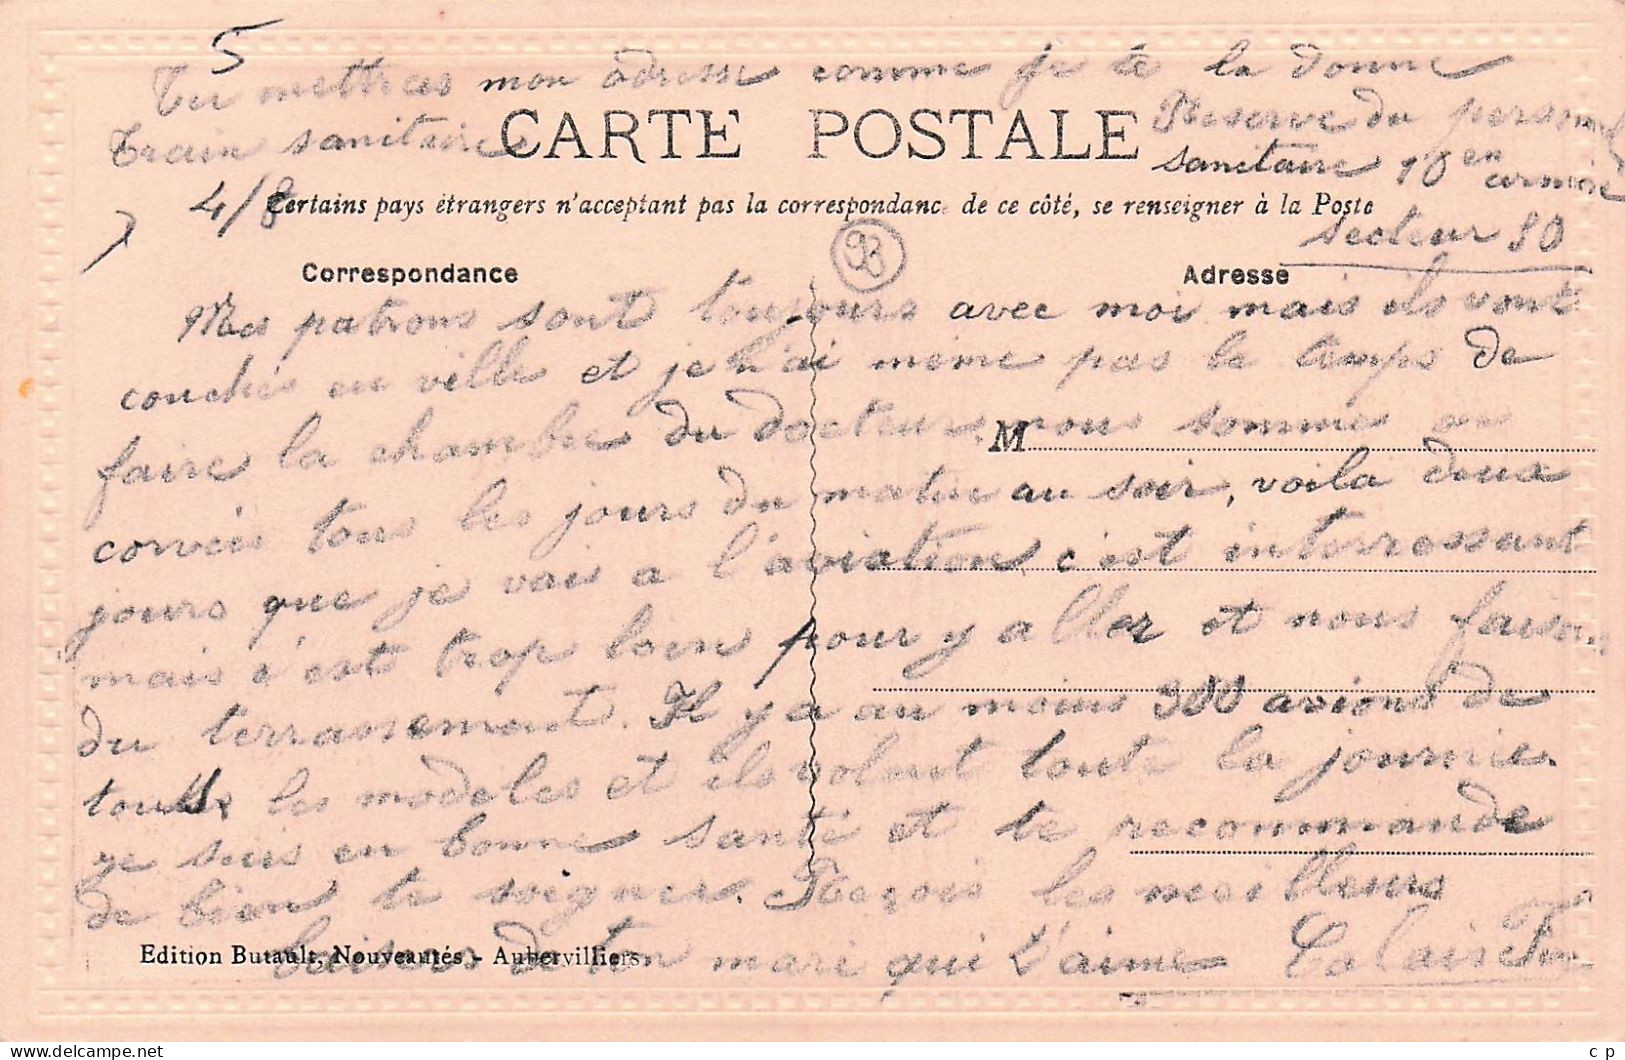 5
Tu mettras mon adresse comme je te la donne
Train sanitaire
CARTE POSTALE
Reserve du personnel
sanitaire 10 en armée
4/8
Certains pays étrangers n'acceptant pas la correspondance de ce côté, se renseigner à la Poste
secteur 80
93
Correspondance
Adresse
Mes patrons sont toujours avec moi mais ils vont
couchés en ville et je n'ai même pas le temps de
faire la chambre du docteur. nous sommes en
M
corvées tous les jours du matin au soir, voila deux
jours que je vais a l'aviation, c'est interressant
mais c'est trop loin pour y aller et nous faisons
du terrassement. Il y a au moins 300 avions de
tous les modeles et ils volent toute la journée.
je suis en bonne santé et te recommande
de bien te soigner. Reçois les meilleurs
baisers de ton mari qui t'aime
Edition Butault, Nouveautés - Aubervilliers
c p